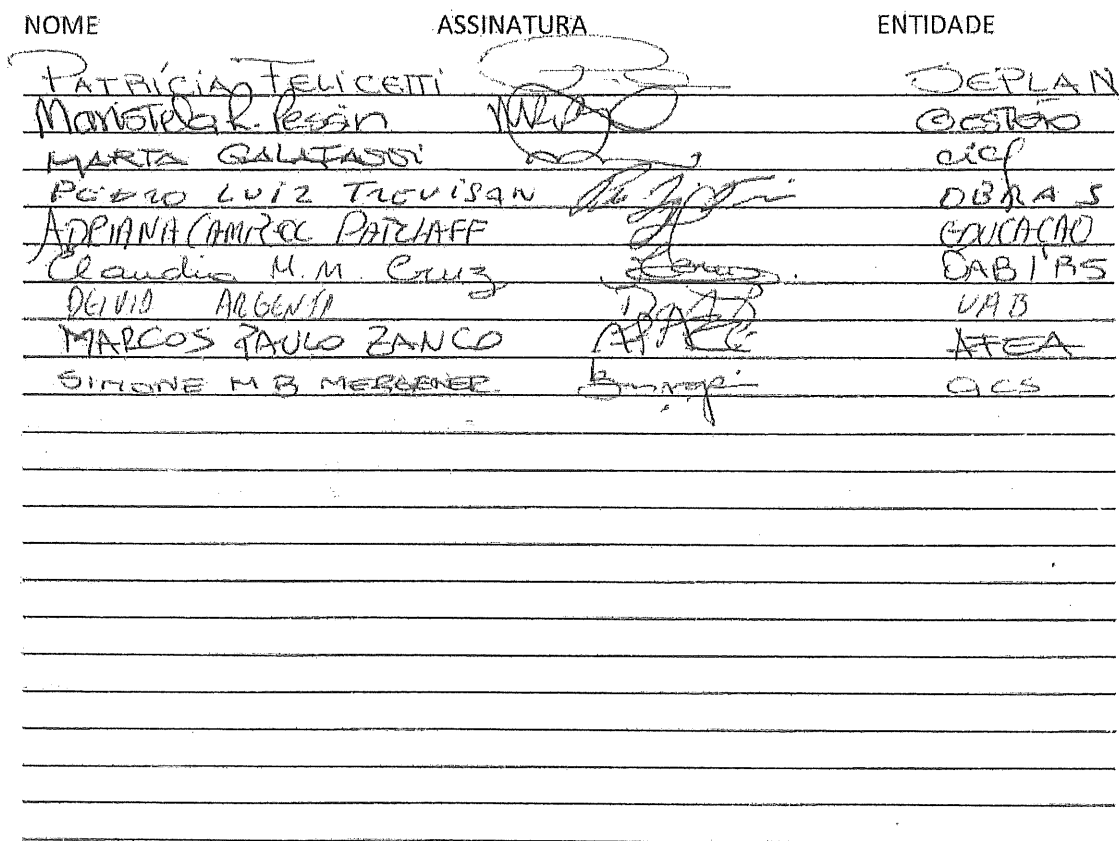 NOME ASSINATURA ENTIDADE
PATRÍCIA FELICETTI SEPLAN
Maristela R. Pessin GESTÃO
MARTA GALAFASSI cicf
PEDRO LUIZ TREVISAN OBRAS
ADRIANA EDUCACAO
Claudia M. M. Cruz OAB/RS
DEIVID ARGENTA UAB
MARCOS PAULO ZANCO AFEA
SIMONE M B MERGENER